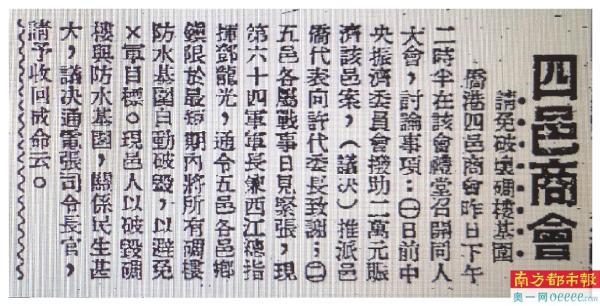 四邑商會
請免破壞碉樓基圍
僑港四邑商會昨日下午
二時半在該會禮堂召開同人
大會，討論事項：㊀日前中
央振濟委員會撥助二萬元賑
濟該邑案，（議决）推派邑
僑代表向許代委長致謝；㊁
五邑各屬戰事日見緊張，現
第六十四軍軍長兼西江總指
揮鄧龍光，通令五邑各邑鄉
鎮限於最短期內將所有碉樓
防水基圍自動破毀，以避免
×軍目標。現邑人以破毀碉
樓與防水基圍，關係民生甚
大，議决通電張司令長官，
請予收回成命云。
南方都市報
奥一网oeeee.com